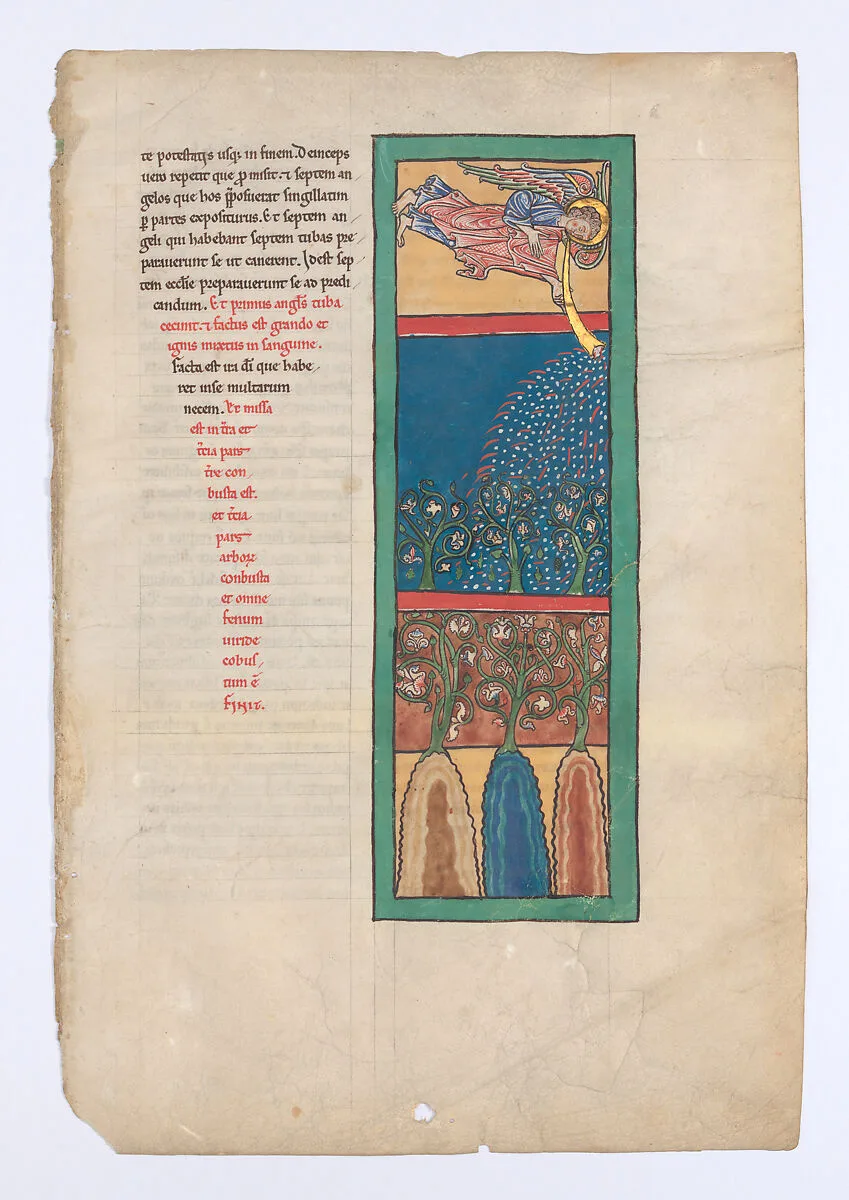 te potestatis usq; in finem. Deinceps
uero repetit que p̄misit. ⁊ septem an
gelos que hos p̄posuerat singillatim
ꝑ partes expositurus. Et septem an
geli qui habebant septem tubas pre
parauerunt se ut canerent. Idest sep
tem ecclie preparauerunt se ad predi
candum. Et primus angls tuba
cecinit. ⁊ factus est grando et
ignis mixtus in sanguine.
facta est ira di que habe
ret inse multarum
necem. Et missa
est in tra et
tcia pars
tre con
busta est.
et tcia
pars
arborꝝ
conbusta
et omne
fenum
uiride
cobus
tum ē
finit.